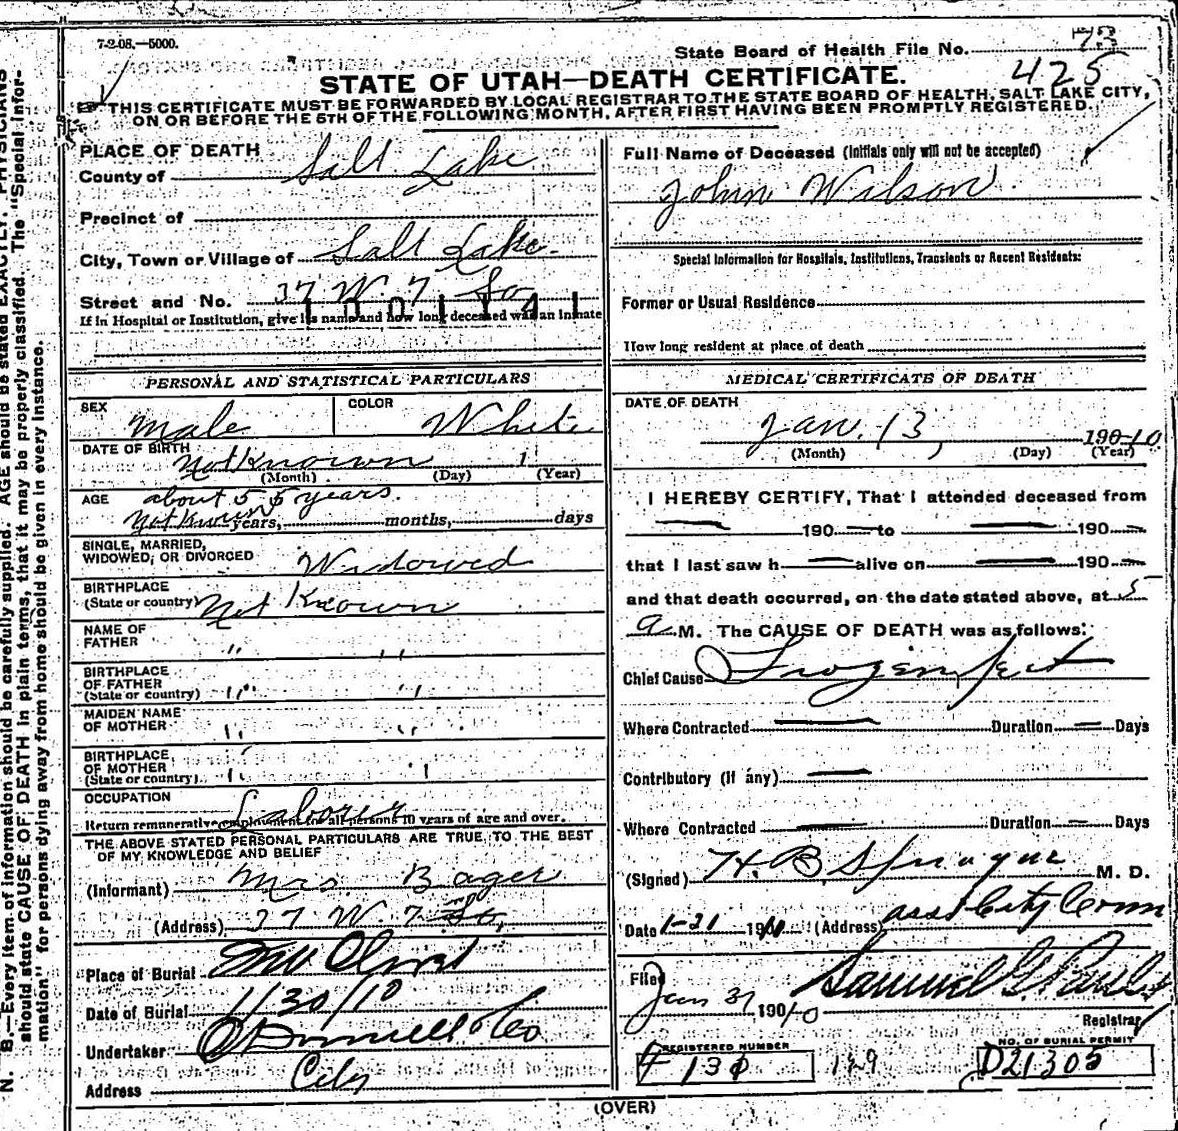 7-2-08.—5000.
State Board of Health File No. 73
425
STATE OF UTAH—DEATH CERTIFICATE.
THIS CERTIFICATE MUST BE FORWARDED BY LOCAL REGISTRAR TO THE STATE BOARD OF HEALTH, SALT LAKE CITY,
ON OR BEFORE THE 5TH OF THE FOLLOWING MONTH, AFTER FIRST HAVING BEEN PROMPTLY REGISTERED.
PLACE OF DEATH
County of Salt Lake
Precinct of
City, Town or Village of Salt Lake.
Street and No. 37 W 7 So
1001141
If in Hospital or Institution, give its name and how long deceased was an inmate
Full Name of Deceased (Initials only will not be accepted)
John Wilson
Special Information for Hospitals, Institutions, Transients or Recent Residents:
Former or Usual Residence
How long resident at place of death
PERSONAL AND STATISTICAL PARTICULARS
SEX Male
COLOR White
DATE OF BIRTH Not Known 1
(Month) (Day) (Year)
AGE about 55 years.
Not Known years, months, days
SINGLE, MARRIED,
WIDOWED, OR DIVORCED Widowed
BIRTHPLACE
(State or country) Not Known
NAME OF
FATHER " "
BIRTHPLACE
OF FATHER
(State or country) " "
MAIDEN NAME
OF MOTHER " "
BIRTHPLACE
OF MOTHER
(State or country) " "
OCCUPATION Laborer
Return remunerative employment for all persons 10 years of age and over.
THE ABOVE STATED PERSONAL PARTICULARS ARE TRUE TO THE BEST
OF MY KNOWLEDGE AND BELIEF
(Informant) Mrs. Bager
(Address) 37 W. 7 So,
Place of Burial Mt Olivet
Date of Burial 1/30/10
Undertaker O'Donnell & Co
Address City
MEDICAL CERTIFICATE OF DEATH
DATE OF DEATH
Jan. 13, 190 10
(Month) (Day) (Year)
I HEREBY CERTIFY, That I attended deceased from
— 190 — to — 190 —
that I last saw h — alive on — 190 —
and that death occurred, on the date stated above, at 5
a M. The CAUSE OF DEATH was as follows:
Chief Cause Frozen feet
Where Contracted — Duration — Days
Contributory (if any) —
Where Contracted — Duration — Days
(Signed) H. B. Sprague M. D.
Date 1-21 19 (Address) asst City Comm
Filed Jan 31 190/10 Samuel G.
Registrar
REGISTERED NUMBER
130
129
NO. OF BURIAL PERMIT
D21305
(OVER)
N. B.—Every item of information should be carefully supplied. AGE should be stated EXACTLY. PHYSICIANS
should state CAUSE OF DEATH in plain terms, that it may be properly classified. The "Special Infor-
mation" for persons dying away from home should be given in every instance.